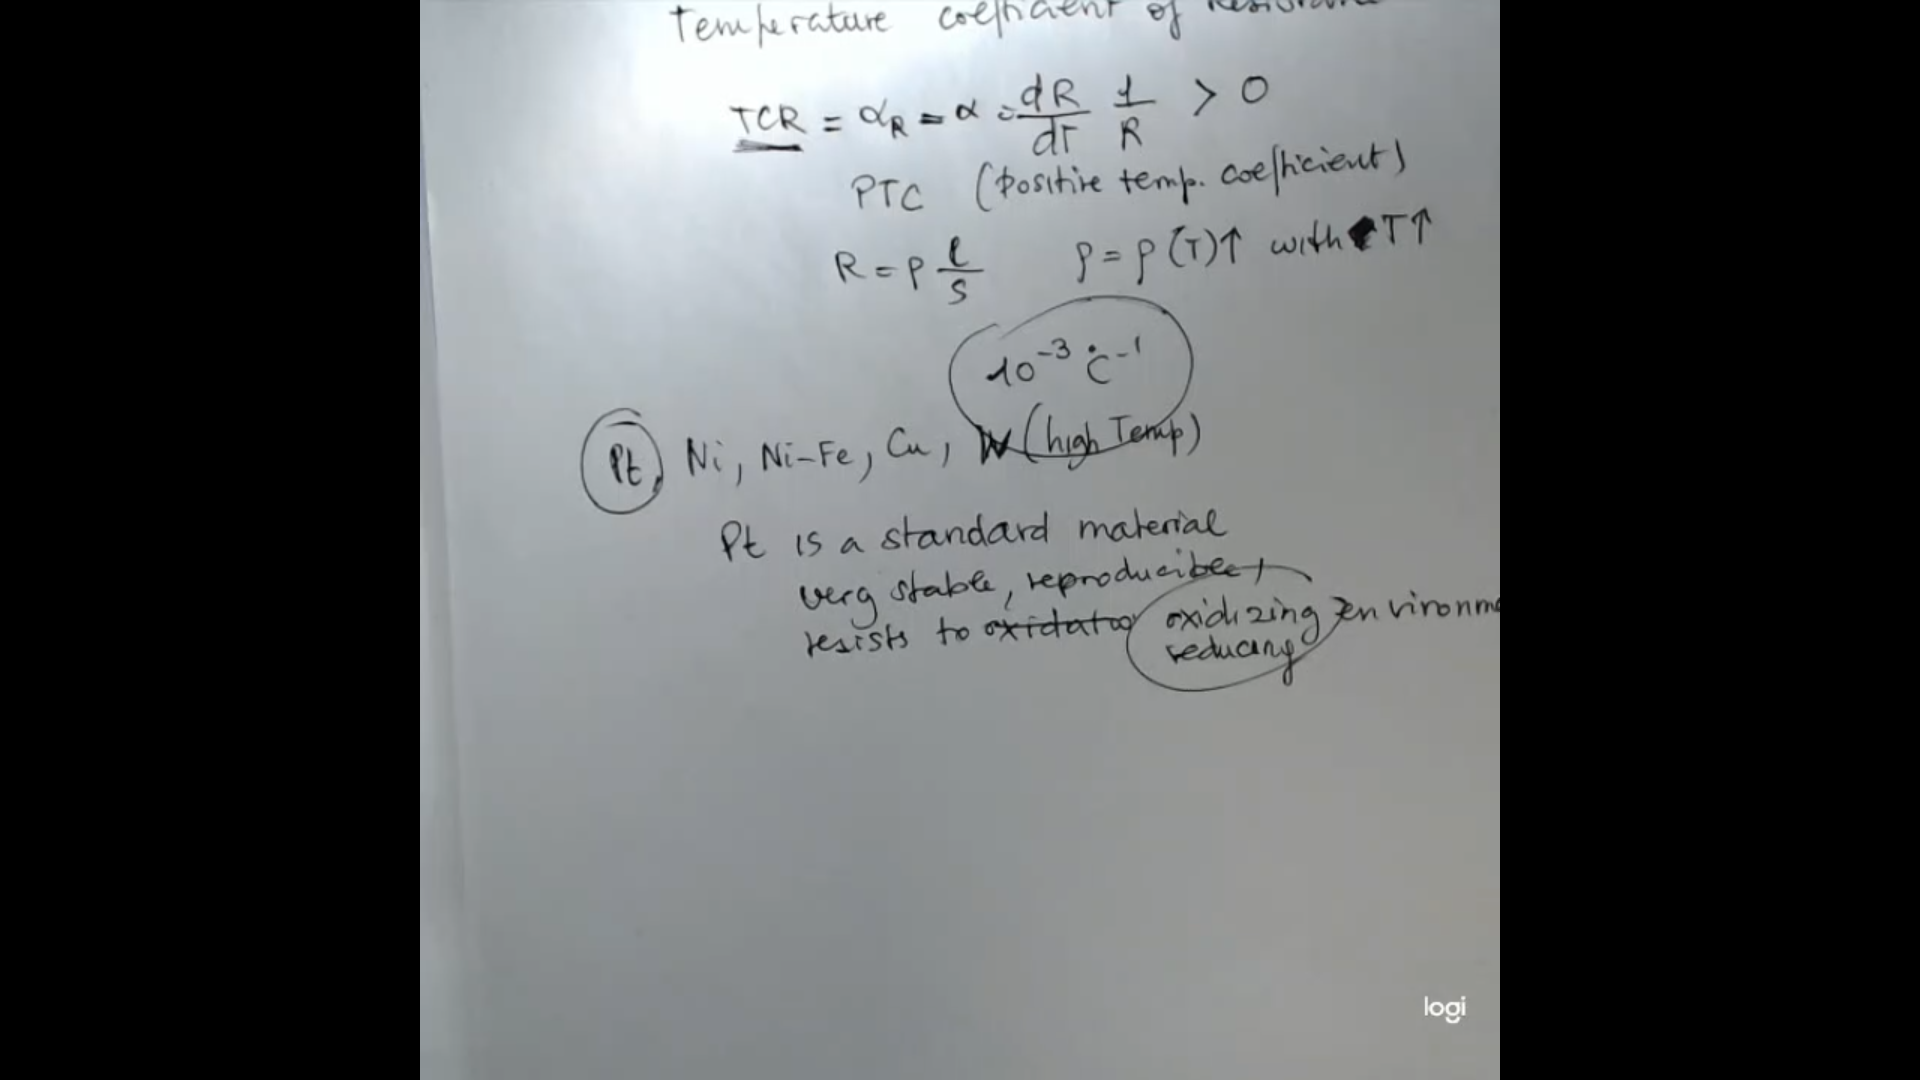 Temperature coefficient of
TCR = αR = α = dR/dT 1/R > 0
PTC (positive temp. coefficient)
R = ρ l/S ρ = ρ(T)↑ with T↑
10⁻³ °C⁻¹
Pt, Ni, Ni-Fe, Cu, W (high Temp)
Pt is a standard material
very stable, reproducible,
resists to oxidizing environme
reducing
logi